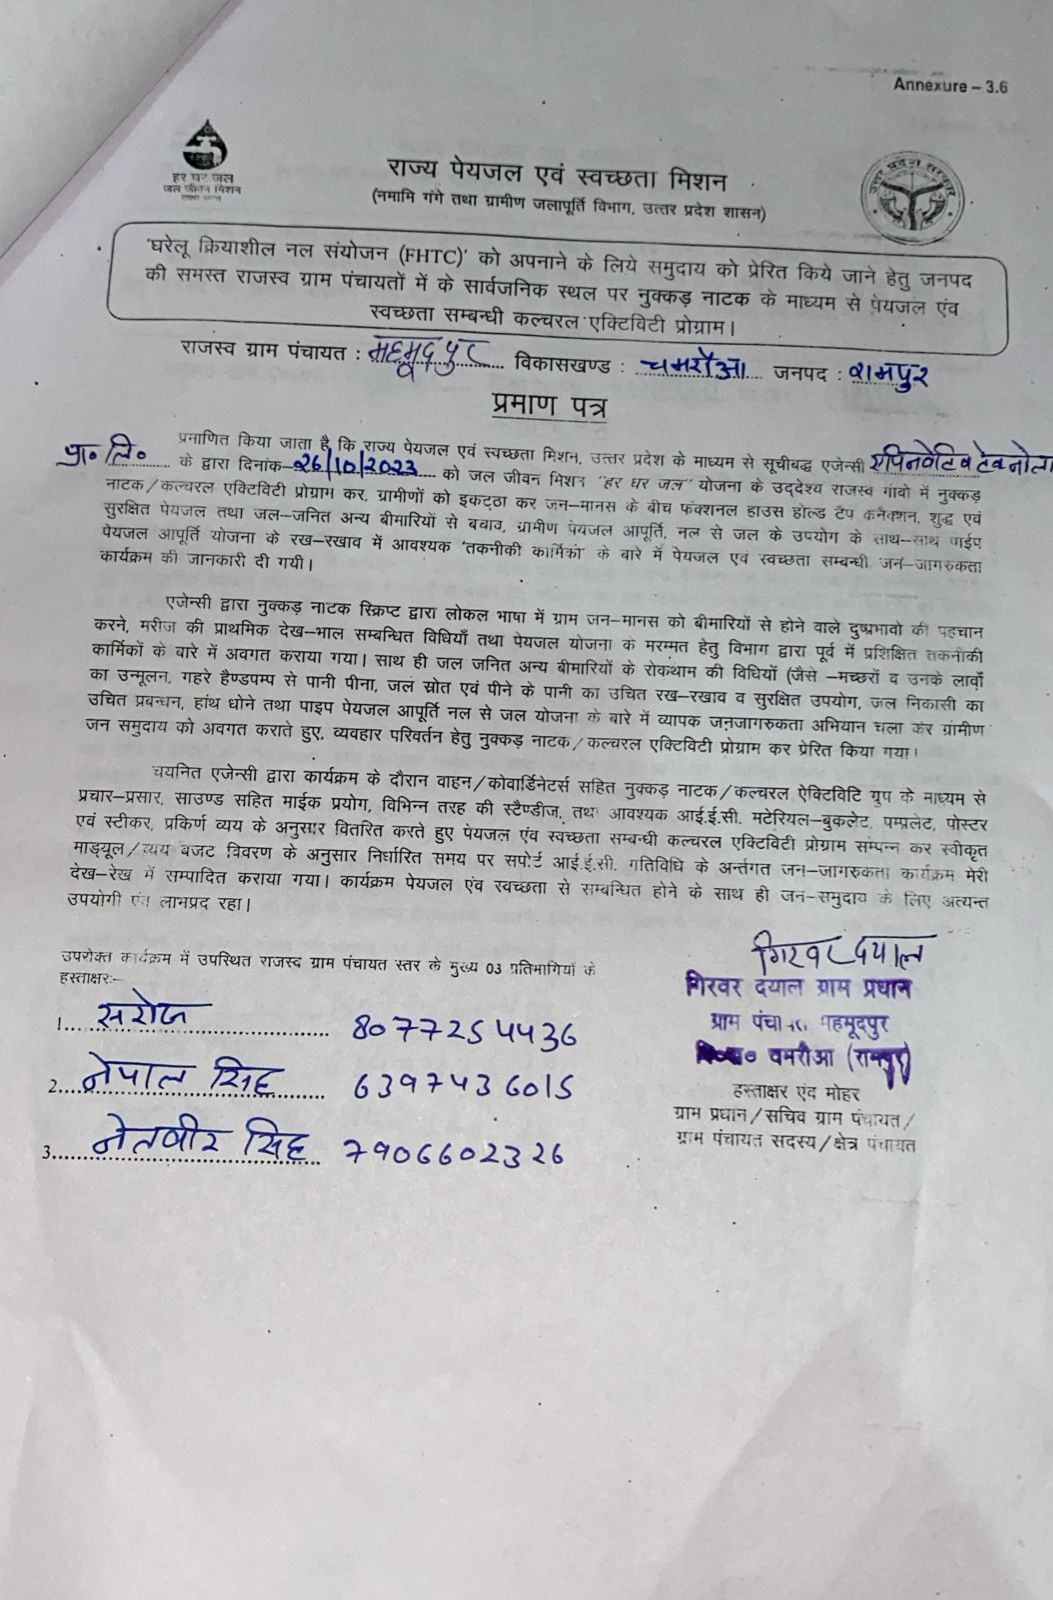 Annexure – 3.6
हर घर जल
जल जीवन मिशन
राज्य पेयजल एवं स्वच्छता मिशन
(नमामि गंगे तथा ग्रामीण जलापूर्ति विभाग, उत्तर प्रदेश शासन)
उत्तर प्रदेश सरकार
'घरेलू क्रियाशील नल संयोजन (FHTC)' को अपनाने के लिये समुदाय को प्रेरित किये जाने हेतु जनपद
की समस्त राजस्व ग्राम पंचायतों में के सार्वजनिक स्थल पर नुक्कड़ नाटक के माध्यम से पेयजल एंव
स्वच्छता सम्बन्धी कल्चरल एक्टिविटी प्रोग्राम।
राजस्व ग्राम पंचायत : महमूदपुर विकासखण्ड : चमरौआ जनपद : रामपुर
प्रमाण पत्र
प्रमाणित किया जाता है कि राज्य पेयजल एवं स्वच्छता मिशन, उत्तर प्रदेश के माध्यम से सूचीबद्ध एजेन्सी एपिनवेटिव टेक्नोला
प्रा० लि० के द्वारा दिनांक–26/10/2023 को जल जीवन मिशन "हर घर जल" योजना के उद्देश्य राजस्व गांवो में नुक्कड़
नाटक/कल्चरल एक्टिविटी प्रोग्राम कर, ग्रामीणों को इकट्ठा कर जन–मानस के बीच फंक्शनल हाउस होल्ड टैप कनैक्शन, शुद्ध एवं
सुरक्षित पेयजल तथा जल–जनित अन्य बीमारियों से बचाव, ग्रामीण पेयजल आपूर्ति, नल से जल के उपयोग के साथ–साथ पाईप
पेयजल आपूर्ति योजना के रख–रखाव में आवश्यक 'तकनीकी कार्मिको' के बारे में पेयजल एवं स्वच्छता सम्बन्धी जन–जागरुकता
कार्यक्रम की जानकारी दी गयी।
एजेन्सी द्वारा नुक्कड़ नाटक स्क्रिप्ट द्वारा लोकल भाषा में ग्राम जन–मानस को बीमारियों से होने वाले दुष्प्रभावो की पहचान
करने, मरीज की प्राथमिक देख–भाल सम्बन्धित विधियाँ तथा पेयजल योजना के मरम्मत हेतु विभाग द्वारा पूर्व में प्रशिक्षित तकनीकी
कार्मिकों के बारे में अवगत कराया गया। साथ ही जल जनित अन्य बीमारियों के रोकथाम की विधियों (जैसे –मच्छरों व उनके लार्वा
का उन्मूलन, गहरे हैण्डपम्प से पानी पीना, जल स्रोत एवं पीने के पानी का उचित रख–रखाव व सुरक्षित उपयोग, जल निकासी का
उचित प्रबन्धन, हांथ धोने तथा पाइप पेयजल आपूर्ति नल से जल योजना के बारे में व्यापक जनजागरुकता अभियान चला कर ग्रामीण
जन समुदाय को अवगत कराते हुए, व्यवहार परिवर्तन हेतु नुक्कड़ नाटक/कल्चरल एक्टिविटी प्रोग्राम कर प्रेरित किया गया।
चयनित एजेन्सी द्वारा कार्यक्रम के दौरान वाहन/कोवार्डिनेटर्स सहित नुक्कड़ नाटक/कल्चरल ऐक्टिविटि ग्रुप के माध्यम से
प्रचार–प्रसार, साउण्ड सहित माईक प्रयोग, विभिन्न तरह की स्टैण्डीज, तथा आवश्यक आई.ई.सी. मटेरियल–बुकलेट, पम्पलेट, पोस्टर
एवं स्टीकर, प्रकिर्ण व्यय के अनुसार वितरित करते हुए पेयजल एंव स्वच्छता सम्बन्धी कल्चरल एक्टिविटी प्रोग्राम सम्पन्न कर स्वीकृत
माड्यूल/व्यय बजट विवरण के अनुसार निर्धारित समय पर सपोर्ट आई.ई.सी. गतिविधि के अर्न्तगत जन–जागरुकता कार्यक्रम मेरी
देख–रेख में सम्पादित कराया गया। कार्यक्रम पेयजल एंव स्वच्छता से सम्बन्धित होने के साथ ही जन–समुदाय के लिए अत्यन्त
उपयोगी एंव लाभप्रद रहा।
उपरोक्त कार्यक्रम में उपस्थित राजस्व ग्राम पंचायत स्तर के मुख्य 03 प्रतिभागियों के
हस्ताक्षर:–
1. सरोज 8077254436
2. नेपाल सिंह 6397436015
3. नेतवीर सिंह 7906602326
गिरवर दयाल
गिरवर दयाल ग्राम प्रधान
ग्राम पंचा महमूदपुर
चमरौआ (रामपुर)
हस्ताक्षर एंव मोहर
ग्राम प्रधान/सचिव ग्राम पंचायत/
ग्राम पंचायत सदस्य/क्षेत्र पंचायत